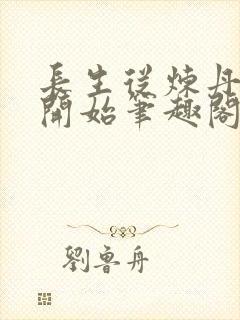 長生從煉丹
開始筆趣閣
劉魯舟